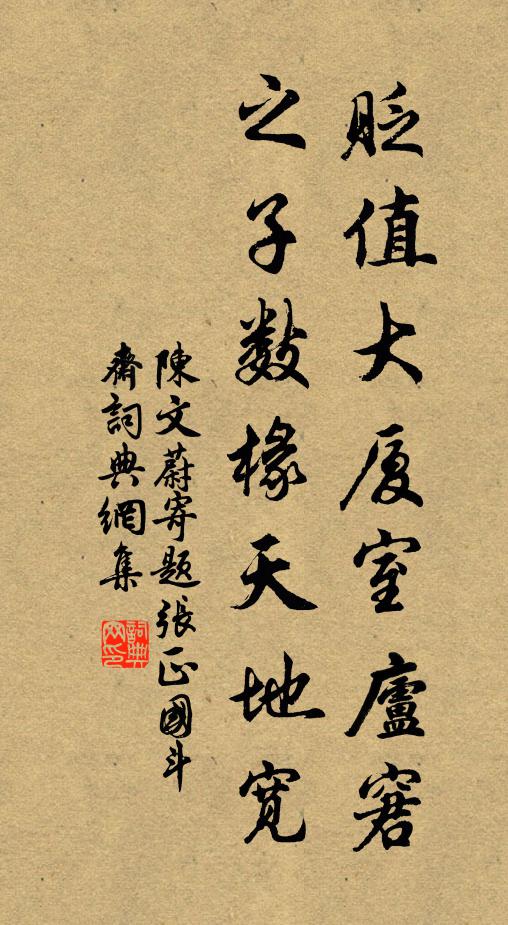 眨值大厦室廬窘
之子数椽天地寬
陳文蔚寄题張正國斗
齋詞典網集
詞典
网印